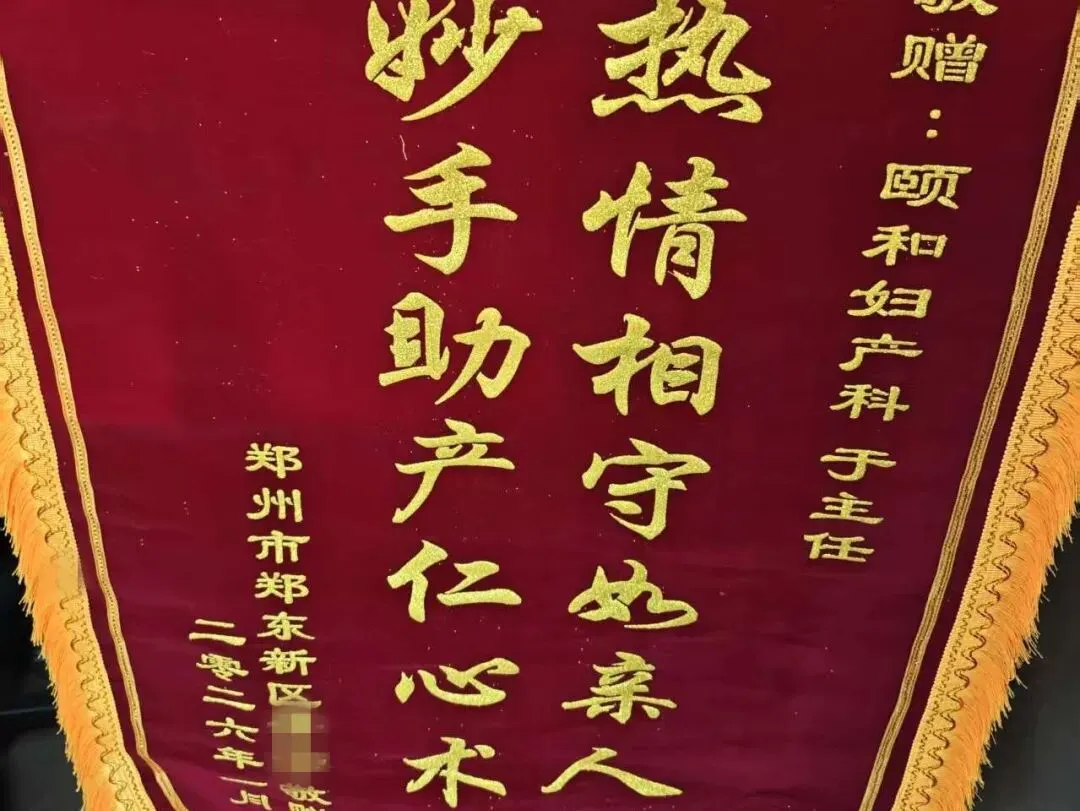 敬赠：颐和妇产科 于主任
热情相守如亲人
妙手助产仁心术
郑州市郑东新区
敬赠
二零二六年一月